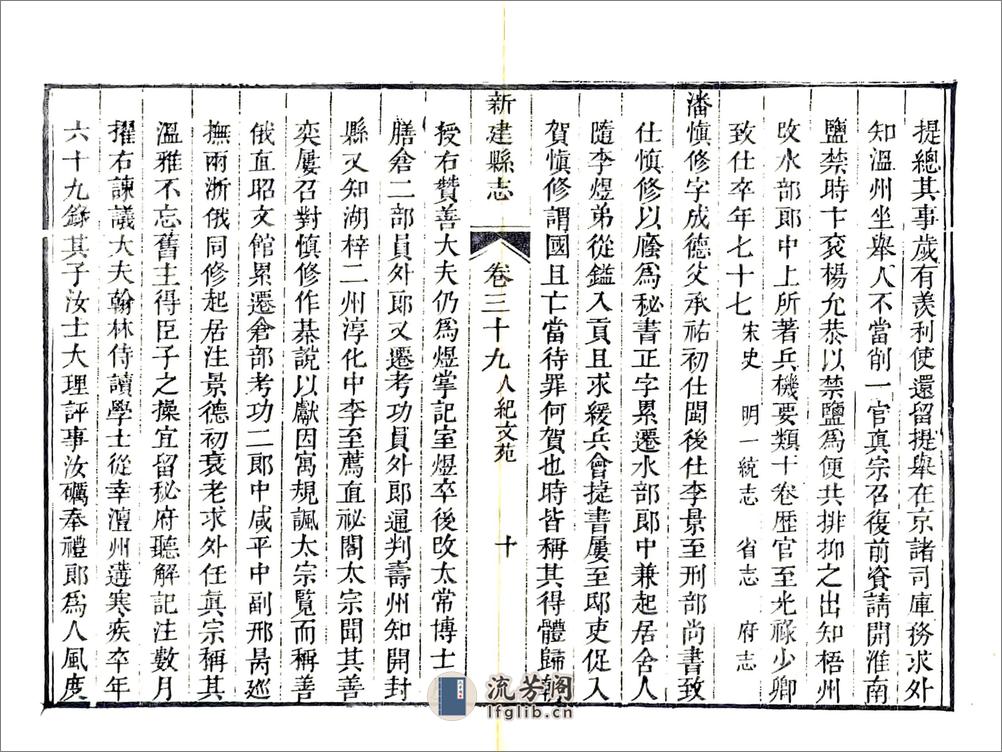 提總其事歲有羨利使還留提舉在京諸司庫務求外
知溫州坐舉人不當削一官真宗召復前資請開淮南
鹽禁時卞袞楊允恭以禁鹽爲便共排抑之出知梧州
改水部郎中上所著兵機要類十卷歷官至光祿少卿
致仕卒年七十七 宋史 明一統志 省志 府志
潘慎修字成德父承祐初仕閩後仕李景至刑部尚書致
仕慎修以廕爲秘書正字累遷水部郎中兼起居舍人
隨李煜弟從鎰入貢且求緩兵會捷書屢至邸吏促入
賀慎修謂國且亡當待罪何賀也時皆稱其得體歸朝
新建縣志 卷三十九 人紀文苑 十
授右贊善大夫仍爲煜掌記室煜卒後改太常博士
膳倉二部員外郎又遷考功員外郎通判壽州知開封
縣又知湖梓二州淳化中李至薦直祕閣太宗聞其善
奕屢召對慎修作棊說以獻因寓規諷太宗覽而稱善
俄直昭文館累遷倉部考功二郎中咸平中副邢昺巡
撫兩浙俄同修起居注景德初衰老求外任真宗稱其
溫雅不忘舊主得臣子之操宜留秘府聽解記注數月
擢右諫議大夫翰林侍讀學士從幸澶州遘寒疾卒年
六十九錄其子汝士大理評事汝礪奉禮郎爲人風度
流芳閣
lfglib.cn